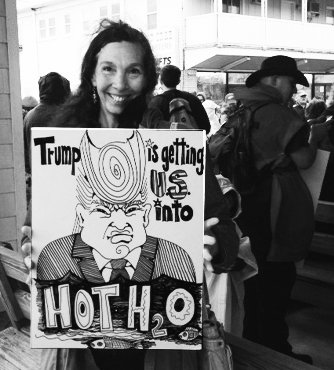 Trump is getting
U.S.
into
HOT H2O